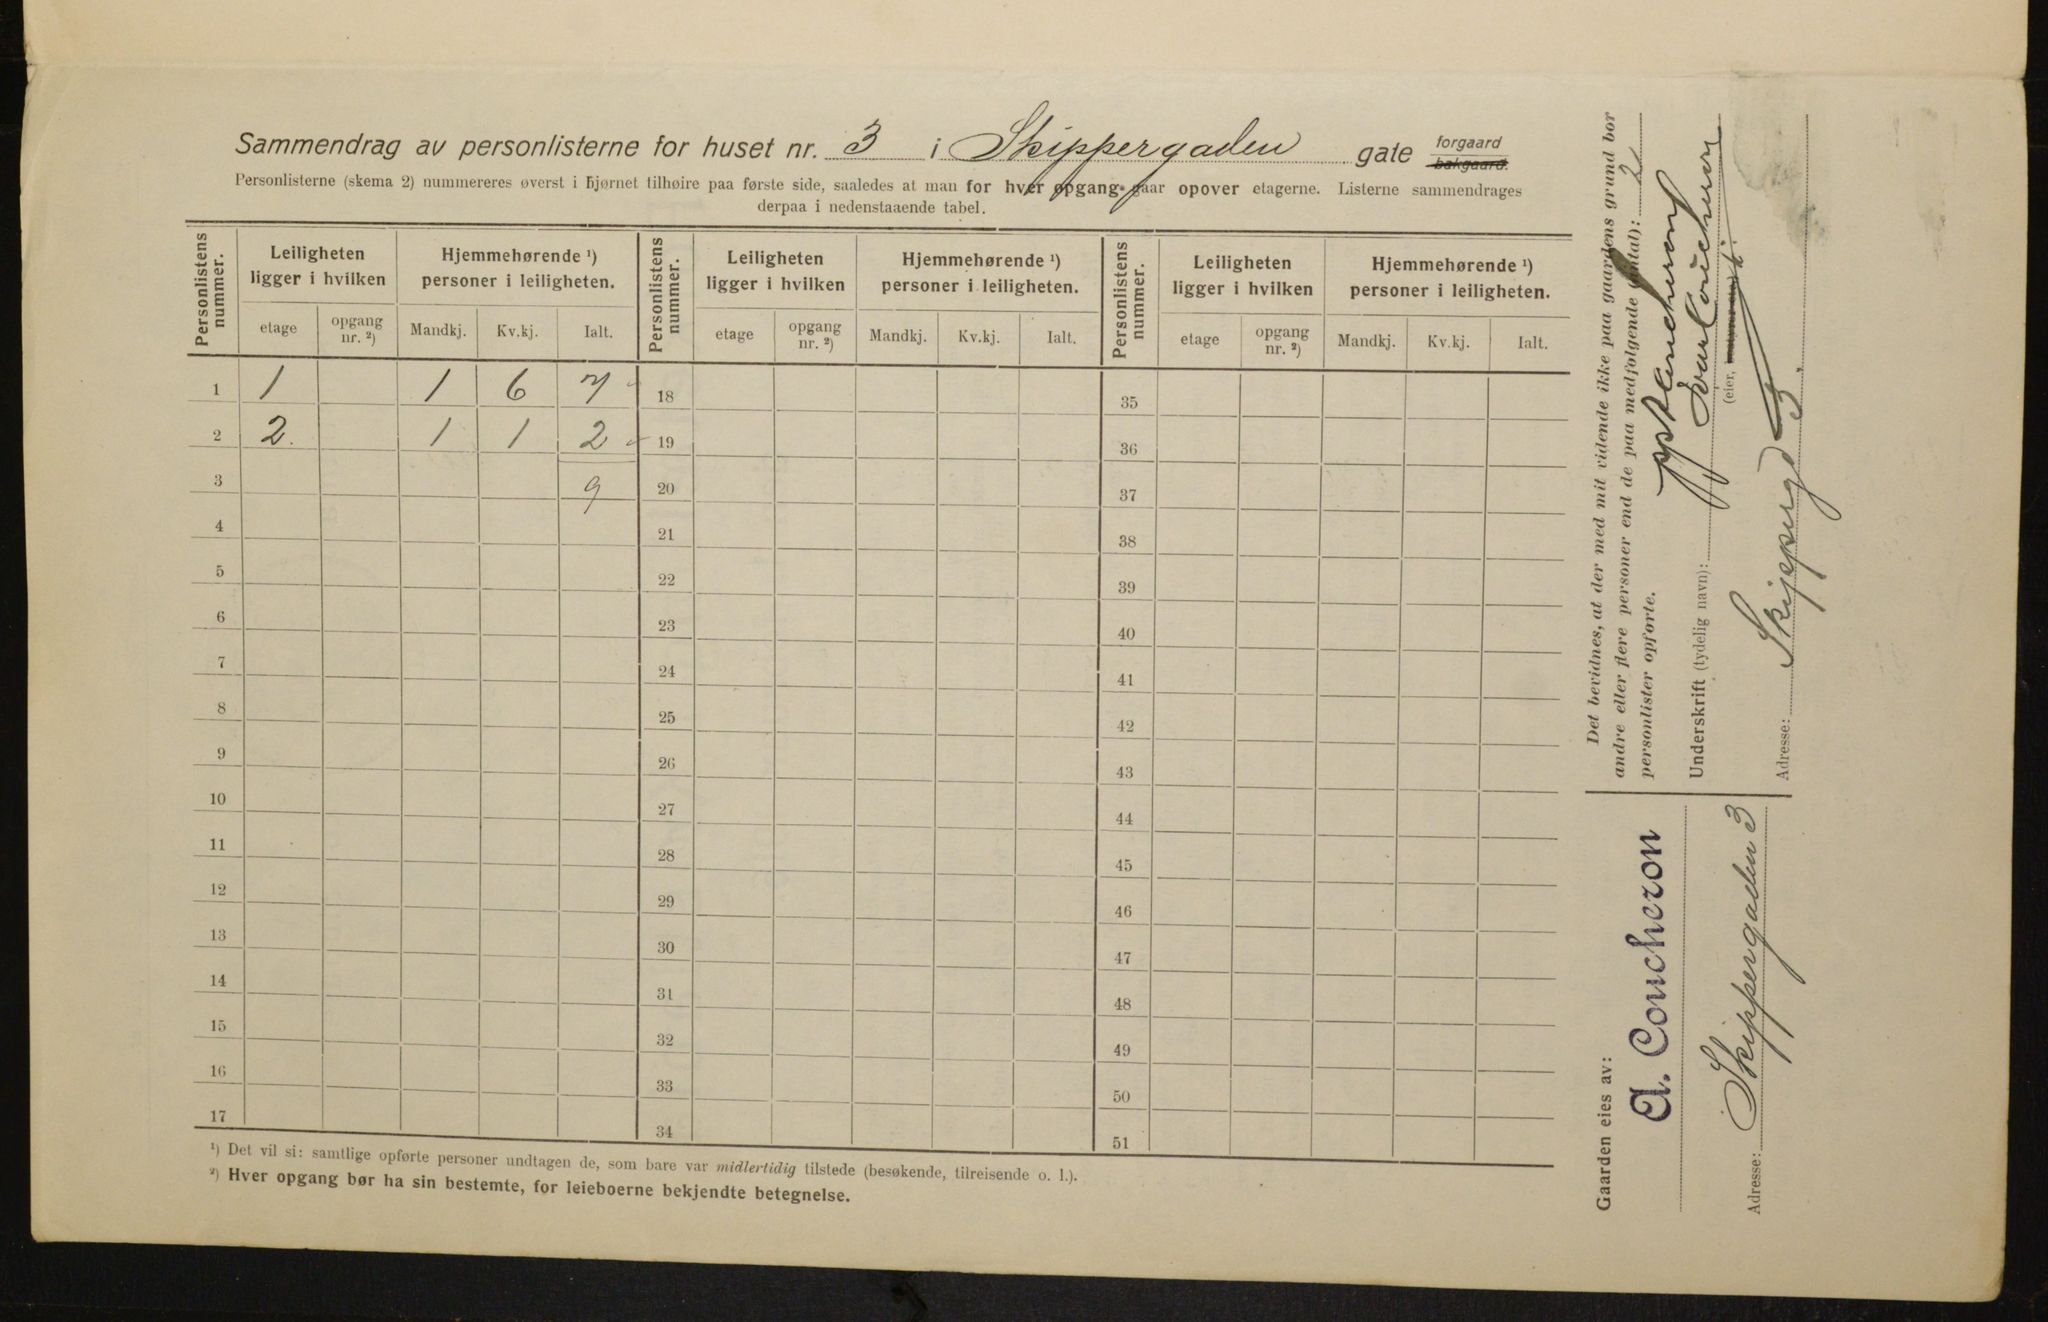 Sammendrag av personlisterne for huset nr. 3 i Skippergaden gate forgaard bakgaard.
Personlisterne (skema 2) nummereres øverst i hjørnet tilhøire paa første side, saaledes at man for hver opgang gaar opover etagerne. Listerne sammendrages
derpaa i nedenstaaende tabel.
Personlistens nummer. Leiligheten ligger i hvilken Hjemmehørende ¹) personer i leiligheten. Personlistens nummer. Leiligheten ligger i hvilken Hjemmehørende ¹) personer i leiligheten. Personlistens nummer. Leiligheten ligger i hvilken Hjemmehørende ¹) personer i leiligheten.
etage opgang nr. ²) Mandkj. Kv.kj. Ialt. etage opgang nr. ²) Mandkj. Kv.kj. Ialt. etage opgang nr. ²) Mandkj. Kv.kj. Ialt.
1 1 1 6 7 18 35
2 2. 1 1 2 19 36
3 9 20 37
4 21 38
5 22 39
6 23 40
7 24 41
8 25 42
9 26 43
10 27 44
11 28 45
12 29 46
13 30 47
14 31 48
15 32 49
16 33 50
17 34 51
¹) Det vil si: samtlige opførte personer undtagen de, som bare var midlertidig tilstede (besøkende, tilreisende o. l.).
²) Hver opgang bør ha sin bestemte, for leieboerne bekjendte betegnelse.
Det bevidnes, at der med mit vidende ikke paa gaardens grund bor
andre eller flere personer end de paa medfølgende (antal): 2
personlister opførte.
Underskrift (tydelig navn):
(eier,
Adresse: Skippergd 3.
Gaarden eies av:
A. Coucheron
Adresse: Skippergaden 3